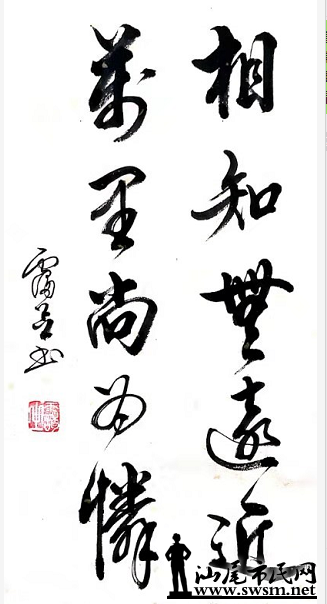 相知無遠近
萬里尚为憐
汕尾市民网
www.swsm.net